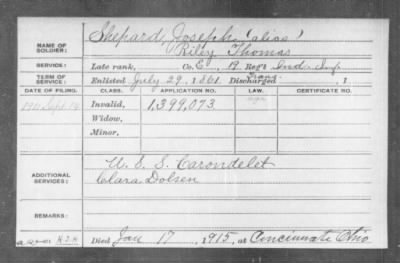 Shepard, Joseph (alias)
Riley Thomas
NAME OF SOLDIER:
SERVICE: Late rank, Co. E, 19 Reg't Ind. Inf.
TERM OF SERVICE: Enlisted July 29, 1861 Discharged Trans., 1
DATE OF FILING. CLASS. APPLICATION NO. LAW. CERTIFICATE NO.
Sept 14 Invalid, 1,399,073
Widow,
Minor,
ADDITIONAL SERVICES: U. S. S. Carondelet
Clara Dolsen
REMARKS:
Died Jan 17, 1915, at Cincinnati Ohio